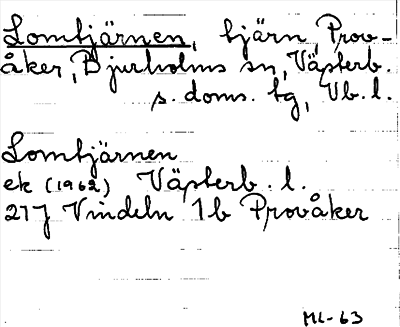 Lomtjärnen, tjärn, Prov-
åker, Bjurholms sn, Västerb.
s. doms. tg, Vb. l.
Lomtjärnen
ek (1962) Västerb. l.
21J Vindeln 1b Provåker
ML-63